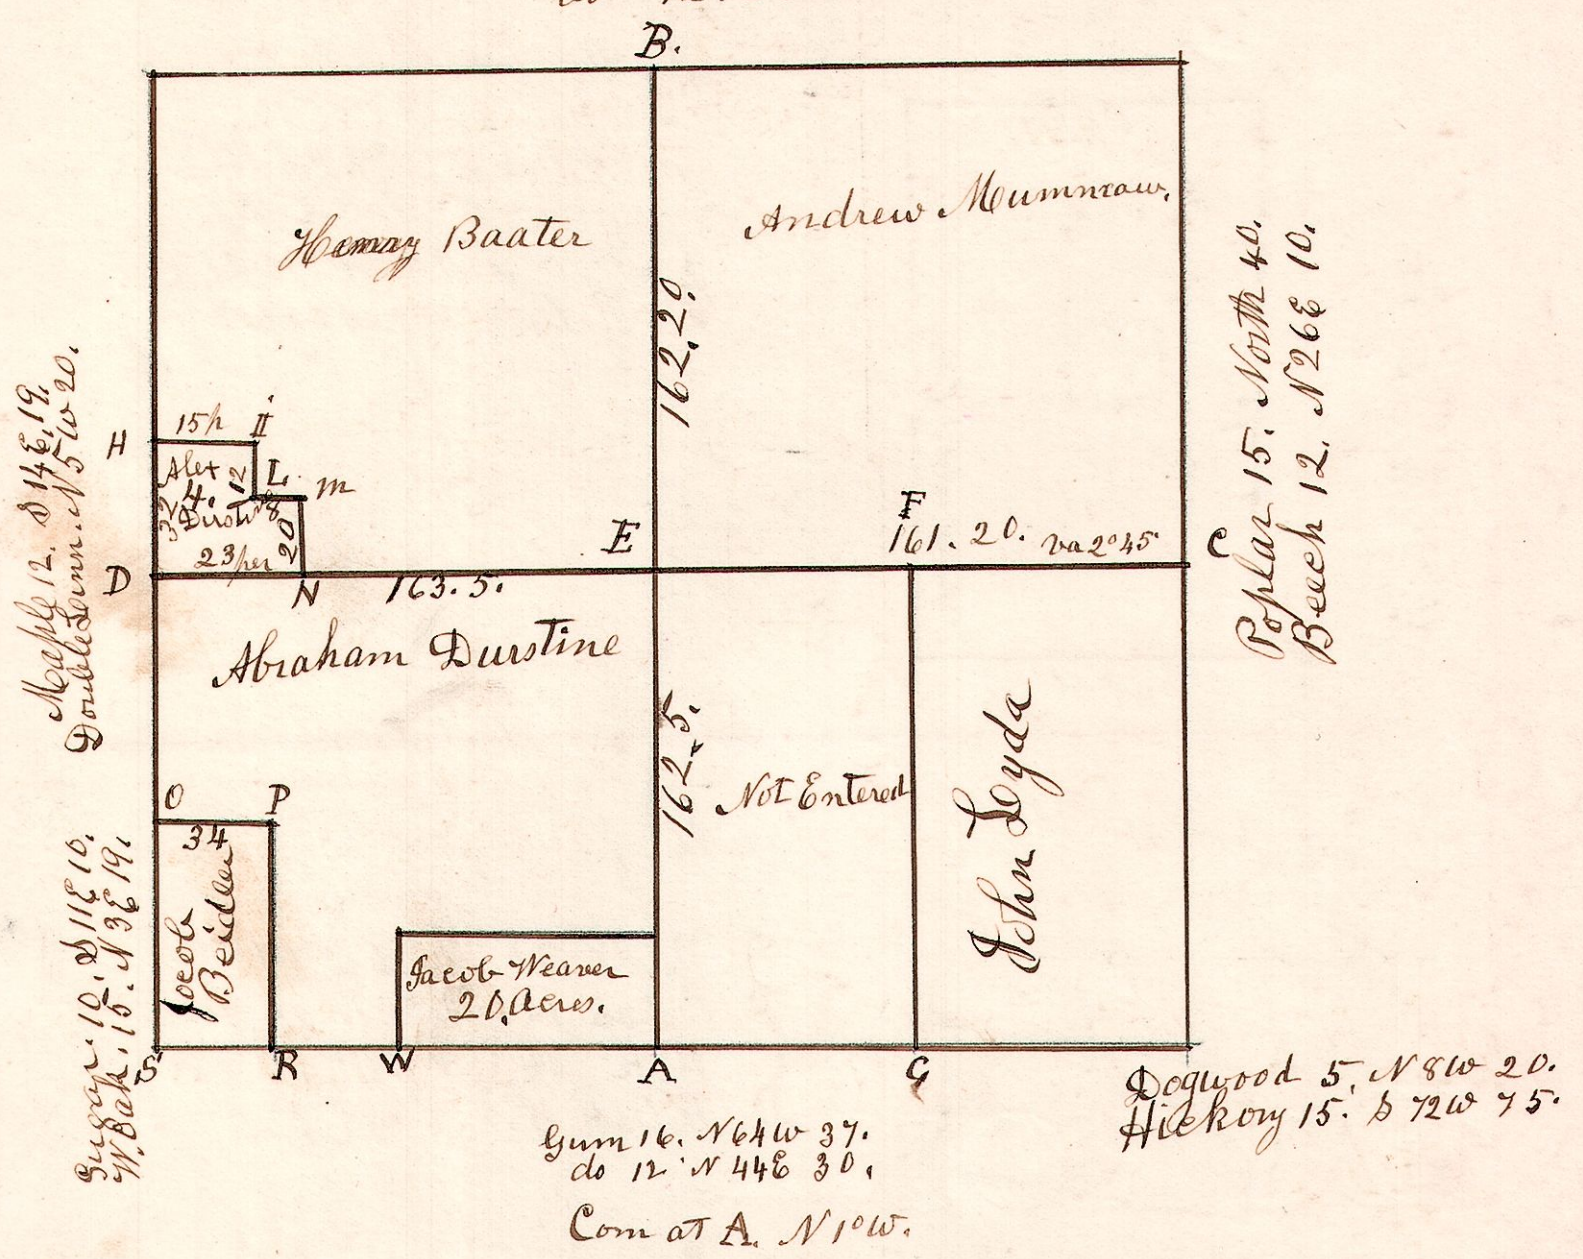 B.
Henry Baater
Andrew Mummaw.
162.20.
Poplar 15. North 40.
Beech 12. N26E 10.
Maple 12. S 14E.19.
Double Linn. N5W20.
H
15p
II
Alex
4.
12
L
m
32
Durstin
8
20
23per
D
N
163.5.
E
F
161.20. va2°45'
C
Abraham Durstine
162.5.
Not Entered
John Lyda
O
P
34
Jacob
Beidler
Jacob Weaver
20. Acres.
Sugar 10. S11E10.
W.Oak. 15. N3E19.
S
R
W
A
G
Dogwood 5. N8W 20.
Hickory 15. S 72W 75.
Gum 16. N64W 37.
do 12 N 44E 30.
Com at A. N1°W.